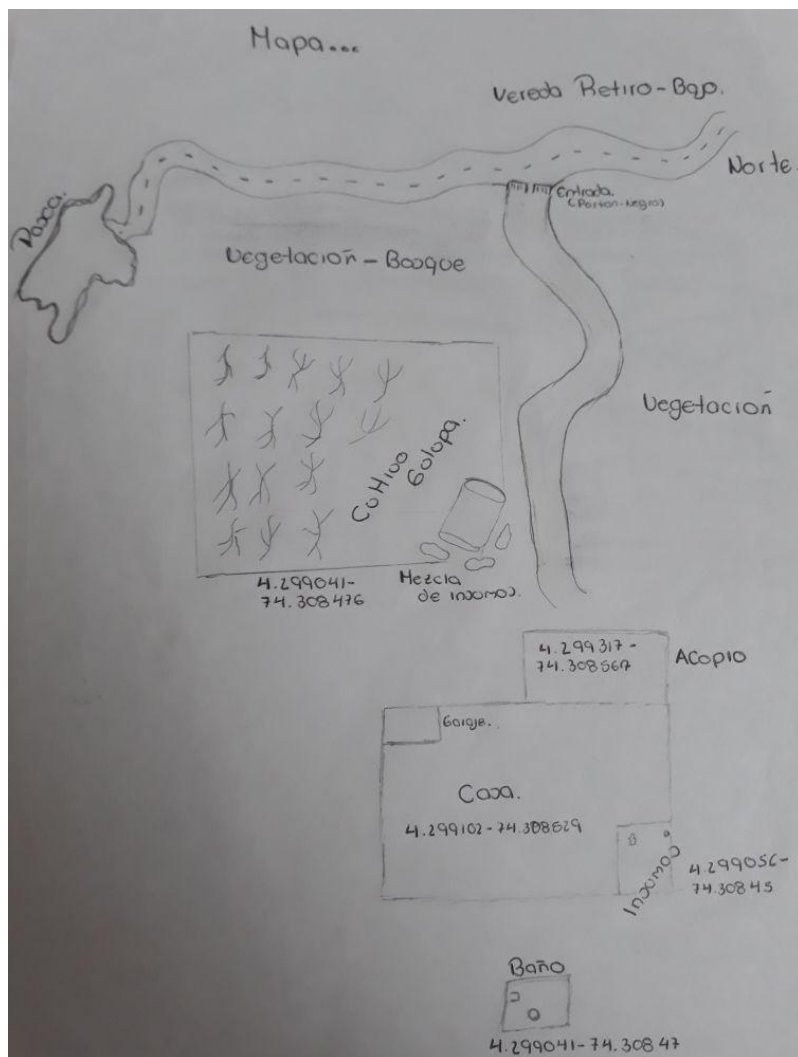 Mapa...
Vereda Retiro-Bajo.
Norte.
Entrada.
(Porton-Negro)
Pasca.
Vegetación - Bosque
Vegetación
Cultivo
Gulupa.
4.299041-
74.308476
Mezcla
de insumos.
4.299317-
74.308567
Acopio
Garaje.
Casa.
4.299102-74.308529
Insumos
4.299056-
74.30845
Baño
4.299041-74.30847